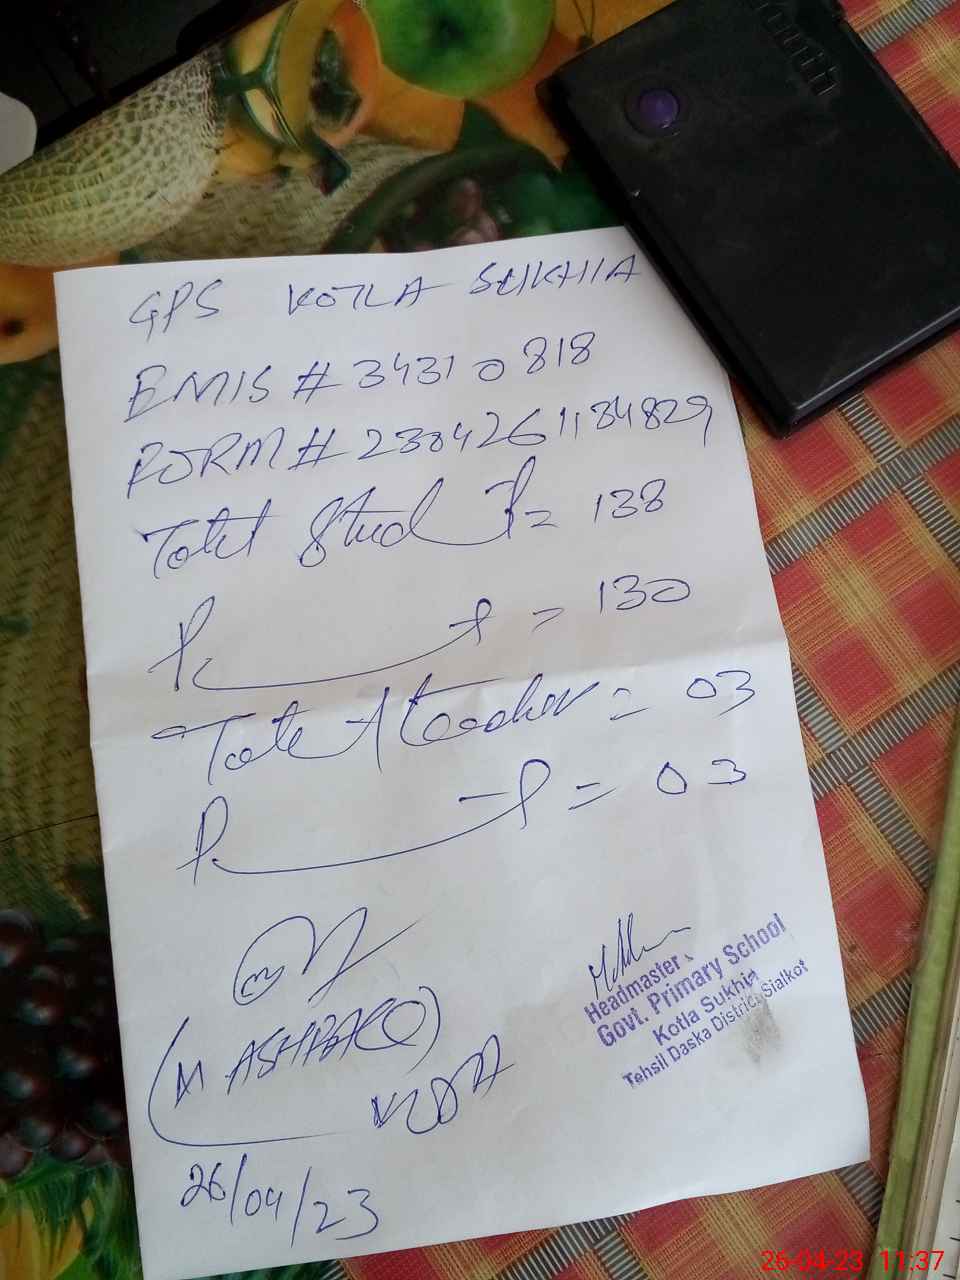 GPS KOTLA SUKHIA
EMIS # 34310818
FORM # 2304261134829
Total Stud P = 138
P P = 130
Total teacher = 03
P P = 03
(M ASHFAQ)
26/04/23
Headmaster
Govt. Primary School
Kotla Sukhia
Tehsil Daska District Sialkot
26-04-23 11:37